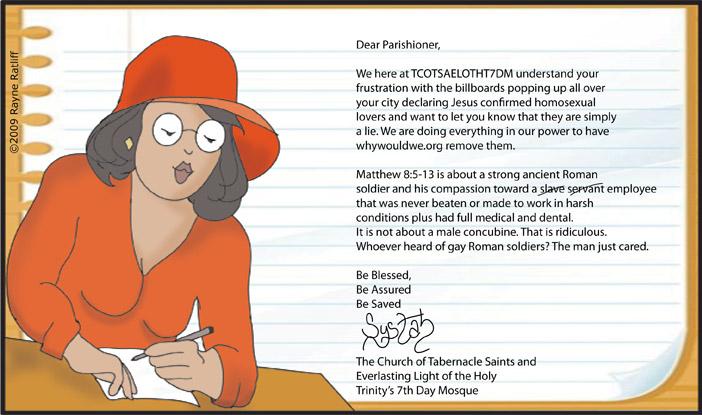 ©2009 Rayne Ratliff
Dear Parishioner,
We here at TCOTSAELOTHT7DM understand your
frustration with the billboards popping up all over
your city declaring Jesus confirmed homosexual
lovers and want to let you know that they are simply
a lie. We are doing everything in our power to have
whywouldwe.org remove them.
Matthew 8:5-13 is about a strong ancient Roman
soldier and his compassion toward a slave servant employee
that was never beaten or made to work in harsh
conditions plus had full medical and dental.
It is not about a male concubine. That is ridiculous.
Whoever heard of gay Roman soldiers? The man just cared.
Be Blessed,
Be Assured
Be Saved
SysTah
The Church of Tabernacle Saints and
Everlasting Light of the Holy
Trinity's 7th Day Mosque